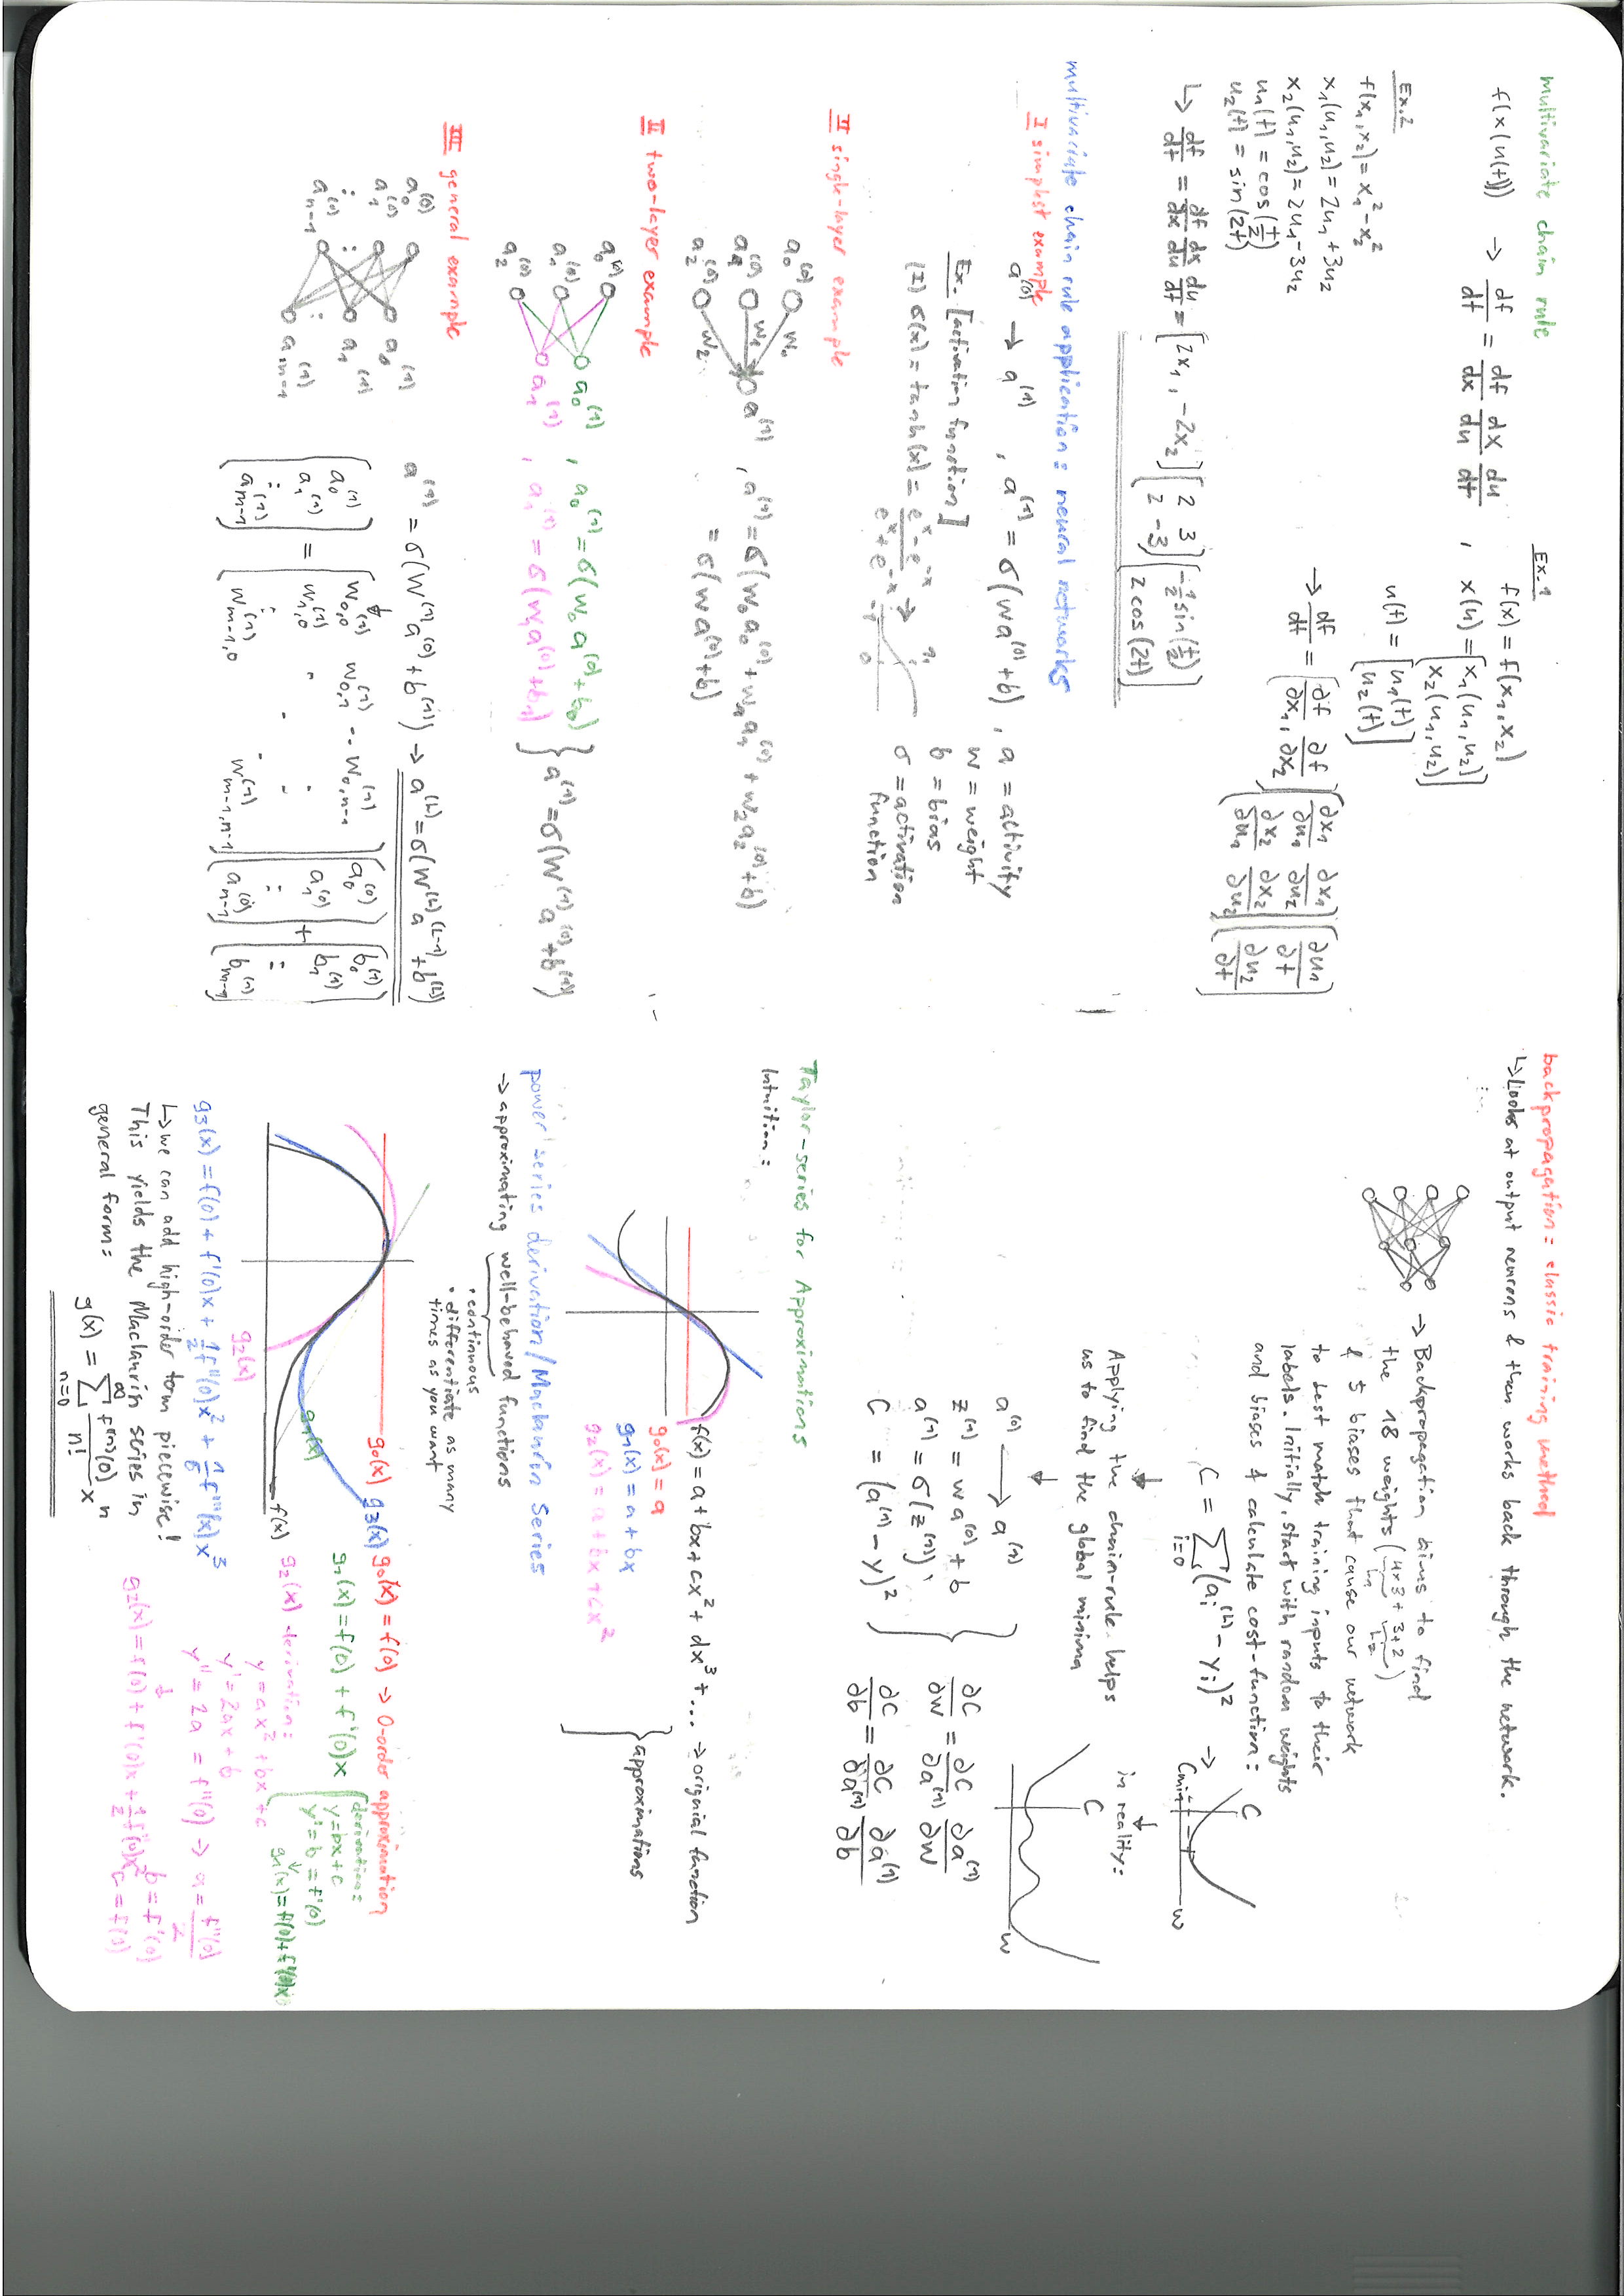 multivariate chain rule
f(x(u(t))) → df/dt = df/dx dx/du du/dt ,
Ex.1
f(x) = f(x₁,x₂)
x(u) = [x₁(u₁,u₂)
x₂(u₁,u₂)]
u(t) = [u₁(t)
u₂(t)]
→ df/dt = [∂f/∂x₁, ∂f/∂x₂] [∂x₁/∂u₁ ∂x₁/∂u₂
∂x₂/∂u₁ ∂x₂/∂u₂] [∂u₁/∂t
∂u₂/∂t]
Ex.2
f(x₁,x₂) = x₁² - x₂²
x₁(u₁,u₂) = 2u₁ + 3u₂
x₂(u₁,u₂) = 2u₁ - 3u₂
u₁(t) = cos(t/2)
u₂(t) = sin(2t)
↳ df/dt = df/dx dx/du du/dt = [2x₁, -2x₂] [2 3
2 -3] [-1/2 sin(t/2)
2 cos(2t)]
multivariate chain rule application: neural networks
I simplest example
a⁽⁰⁾ → a⁽¹⁾ , a⁽¹⁾ = σ(wa⁽⁰⁾+b) , a = activity
w = weight
b = bias
σ = activation
function
Ex. [activation function]
(I) σ(x) = tanh(x) = (eˣ - e⁻ˣ)/(eˣ + e⁻ˣ) →
1
-1
0
II single-layer example
a₀⁽⁰⁾ w₀
a₁⁽⁰⁾ w₁ a⁽¹⁾ , a⁽¹⁾ = σ(w₀a₀⁽⁰⁾ + w₁a₁⁽⁰⁾ + w₂a₂⁽⁰⁾ + b)
a₂⁽⁰⁾ w₂ = σ(wa⁽⁰⁾+b)
II two-layer example
a₀⁽⁰⁾
a₀⁽¹⁾ , a₀⁽¹⁾ = σ(w₀ a⁽⁰⁾ + b₀)
a₁⁽⁰⁾
a₁⁽¹⁾ , a₁⁽¹⁾ = σ(w₁a⁽⁰⁾ + b₁)
} a⁽¹⁾ = σ(W⁽¹⁾a⁽⁰⁾+b⁽¹⁾)
a₂⁽⁰⁾
III general example
a₀⁽⁰⁾ a₀⁽¹⁾
a₁⁽⁰⁾ a₁⁽¹⁾
: : :
aₙ₋₁⁽⁰⁾ aₘ₋₁⁽¹⁾
a⁽¹⁾ = σ(W⁽¹⁾a⁽⁰⁾+b⁽¹⁾) → a⁽ᴸ⁾ = σ(W⁽ᴸ⁾a⁽ᴸ⁻¹⁾+b⁽ᴸ⁾)
↓
[a₀⁽¹⁾
a₁⁽¹⁾
:
aₘ₋₁⁽¹⁾] = [w₀,₀⁽¹⁾ w₀,₁⁽¹⁾ -- w₀,ₙ₋₁⁽¹⁾
w₁,₀⁽¹⁾
:
wₘ₋₁,₀⁽¹⁾ wₘ₋₁,ₙ₋₁⁽¹⁾] [a₀⁽⁰⁾
a₁⁽⁰⁾
:
aₙ₋₁⁽⁰⁾] + [b₀⁽¹⁾
b₁⁽¹⁾
:
bₘ₋₁⁽¹⁾]
backpropagation: classic training method
↳ Looks at output neurons & then works back through the network.
→ Backpropagation aims to find
the 18 weights (4x3 + 3+2)
L₁ L₂
& 5 biases that cause our network
to best match training inputs to their
labels. Initially, start with random weights
and biases & calculate cost-function:
C = Σ i=0 (aᵢ⁽ᴸ⁾ - yᵢ)² →
C
Cmin
w
↓
Applying the chain-rule helps
us to find the global minima
↓
in reality:
C
w
a⁽⁰⁾ → a⁽¹⁾
z⁽¹⁾ = wa⁽⁰⁾ + b
a⁽¹⁾ = σ(z⁽¹⁾)
C = (a⁽¹⁾ - y)²
∂C/∂w = ∂C/∂a⁽¹⁾ ∂a⁽¹⁾/∂w
∂C/∂b = ∂C/∂a⁽¹⁾ ∂a⁽¹⁾/∂b
Taylor-series for Approximations
Intuition:
f(x) = a + bx + cx² + dx³ + ... → orignial function
g₀(x) = a
g₁(x) = a + bx
g₂(x) = a + bx + cx²
} approximations
power series derivation/Maclaurin Series
→ approximating well-behaved functions
• continuous
• differentiate as many
times as you want
g₀(x) g₃(x) g₀(x) = f(0) → 0-order approximation
g₁(x) = f(0) + f'(0)x
derivation:
y=bx+c
y'=b = f'(0)
↓
g₁(x) = f(0)+f'(0)x
g₁(x)
f(x)
g₂(x)
g₂(x) derivation:
y = ax² + bx + c
y' = 2ax + b
y'' = 2a = f''(0) → a = f''(0)/2
↓
b = f'(0)
c = f(0)
g₂(x) = f(0) + f'(0)x + 1/2 f''(0)x²
g₃(x) = f(0) + f'(0)x + 1/2 f''(0)x² + 1/6 f'''(x)x³
↳ we can add high-order term piecewise!
This yields the Maclaurin series in
general form:
g(x) = Σ n=0 ∞ f⁽ⁿ⁾(0)/n! xⁿ